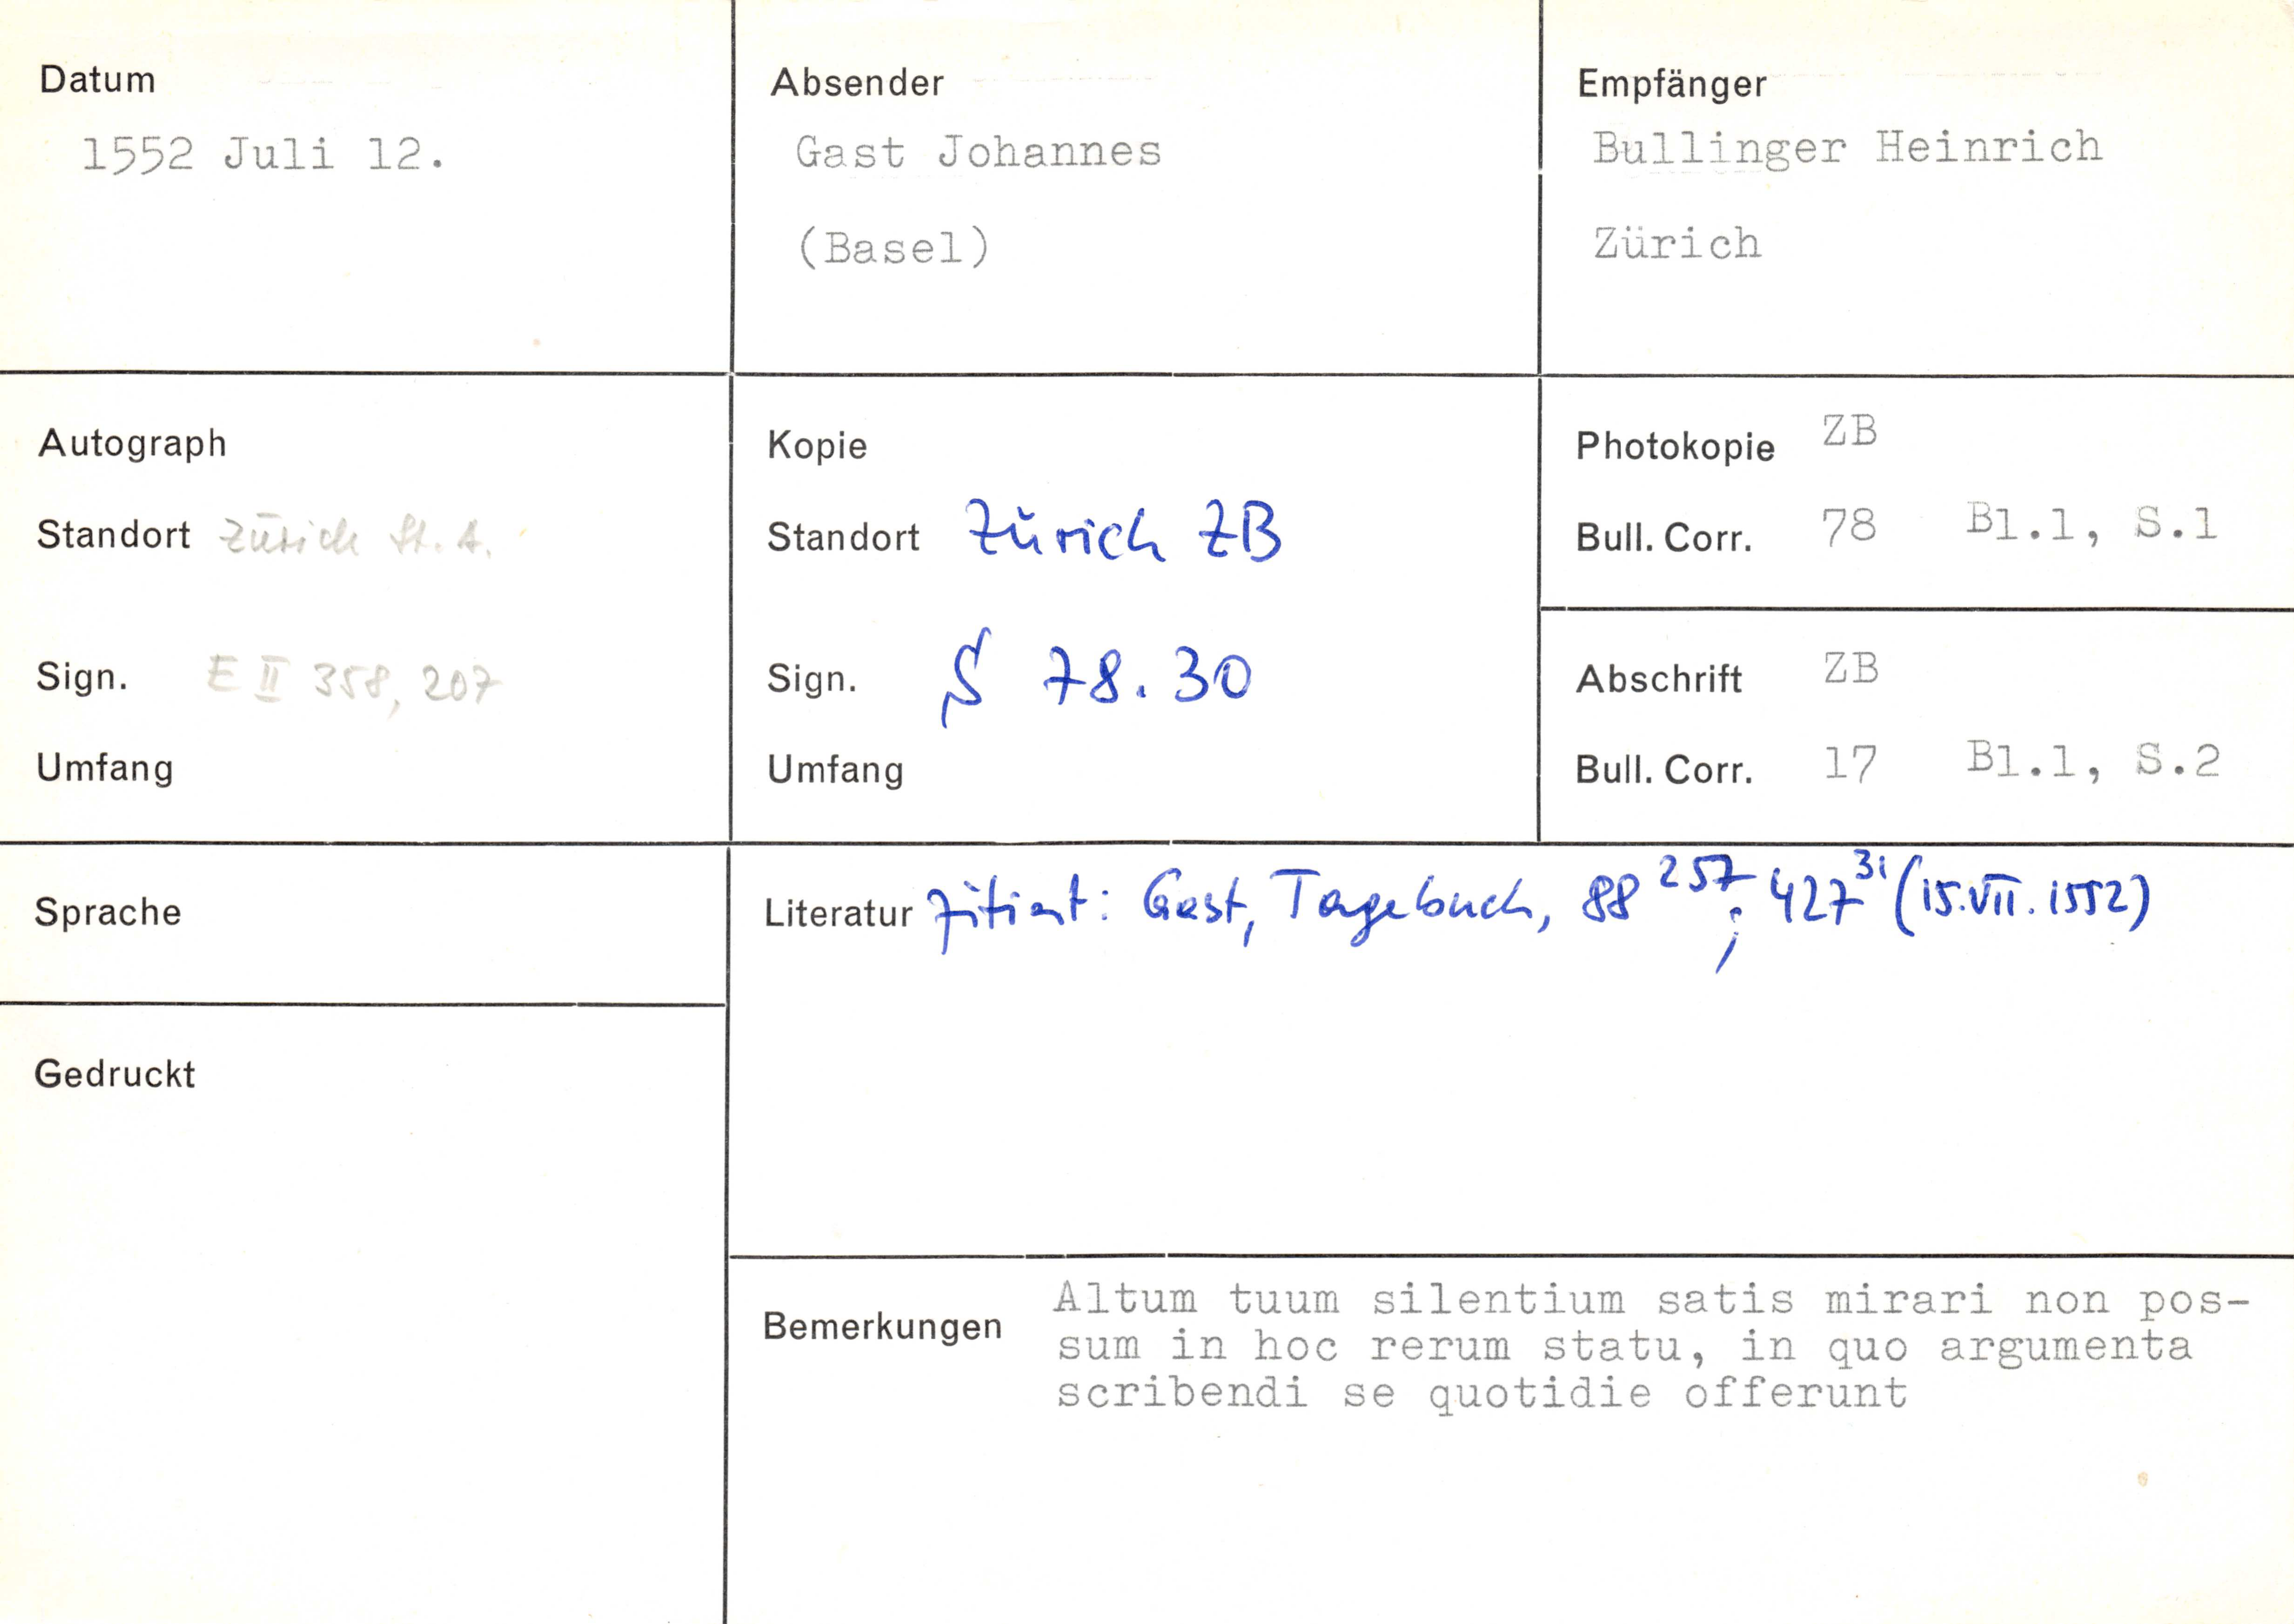 Datum
1552 Juli 12.
Absender
Gast Johannes
(Basel)
Empfänger
Bullinger Heinrich
Zürich
Autograph
Standort Zürich St. A.
Sign. E II 358, 207
Umfang
Kopie
Standort Zürich ZB
Sign. S 78.30
Umfang
Photokopie ZB
Bull. Corr. 78 Bl.1, S.1
Abschrift ZB
Bull. Corr. 17 Bl.1, S.2
Sprache
Literatur zitiert: Gast, Tagebuch, 88 257; 427 31 (15.VII.1552)
Gedruckt
Bemerkungen Altum tuum silentium satis mirari non pos-
sum in hoc rerum statu, in quo argumenta
scribendi se quotidie offerunt